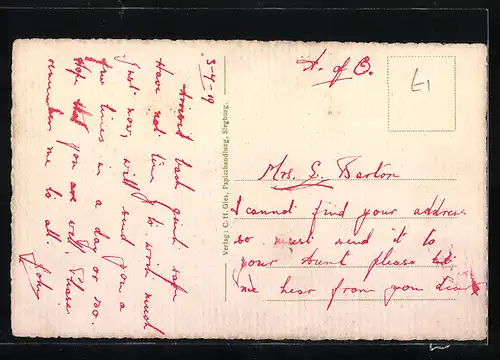 3-4-19
Arrived back quite safe
Have not time to write much
just now, will send you a
few lines in a day or so.
Hope that you are well, Please
remember me to all.
Verlag: C. H. Gies, Papierhandlung, Siegburg.
A. of O.
£1
Mrs. S. Barton
I cannot find your address
so must send it to
your Aunt please let
me hear from you